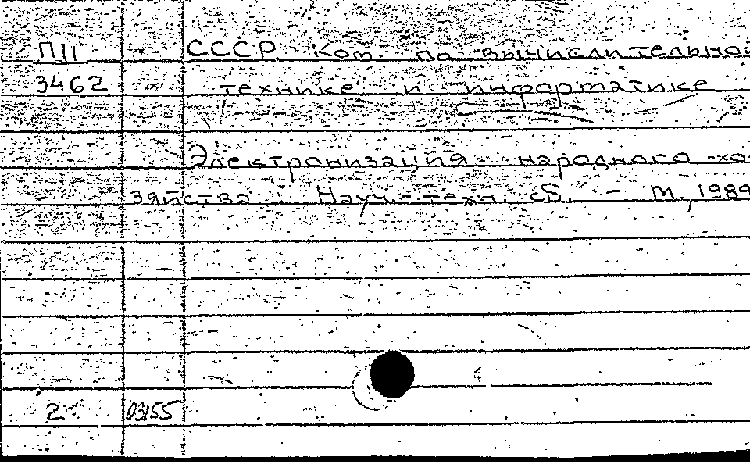 П11 СССР. Ком. по вычислительной
3462 технике и информатике
Электронизация народного хо-
зяйства : Науч.-техн. сб. - М., 1989
2 03155